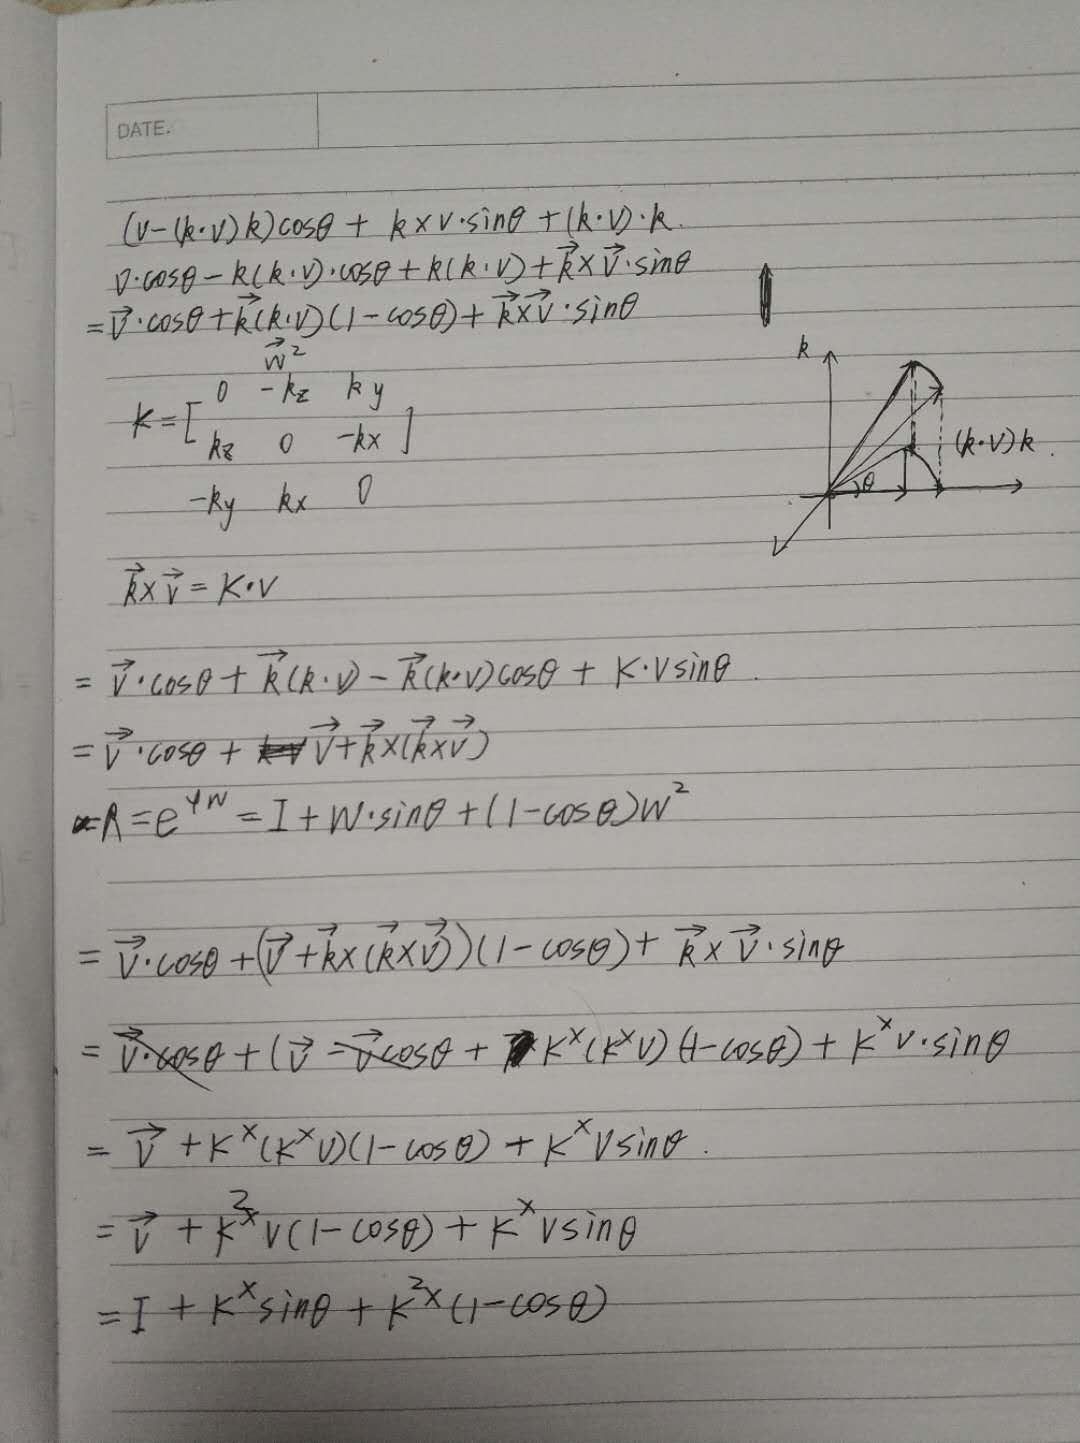 DATE.
(v-(k·v)k)cosθ + k×v·sinθ + (k·v)·k.
v·cosθ - k(k·v)·cosθ + k(k·v) + k⃗×v⃗·sinθ
= v⃗·cosθ + k⃗(k·v)(1-cosθ) + k⃗×v⃗·sinθ
w⃗²
k
0 -kz ky
K = [ kz 0 -kx ]
(k·v)k.
θ
-ky kx 0
k⃗×v⃗ = K·v
= v⃗·cosθ + k⃗(k·v) - k⃗(k·v)cosθ + K·vsinθ.
= v⃗·cosθ + v⃗+k⃗×(k⃗×v⃗)
R = e^φW = I + W·sinθ + (1-cosθ)W²
= v⃗·cosθ + (v⃗+k⃗×(k⃗×v⃗))(1-cosθ) + k⃗×v⃗·sinθ
= v⃗·cosθ + (v⃗ - v⃗cosθ + K^×(K^×v)(1-cosθ) + K^×v·sinθ
= v⃗ + K^×(K^×v)(1-cosθ) + K^×vsinθ.
= v⃗ + K^2×v(1-cosθ) + K^×vsinθ
= I + K^×sinθ + K^2×(1-cosθ)